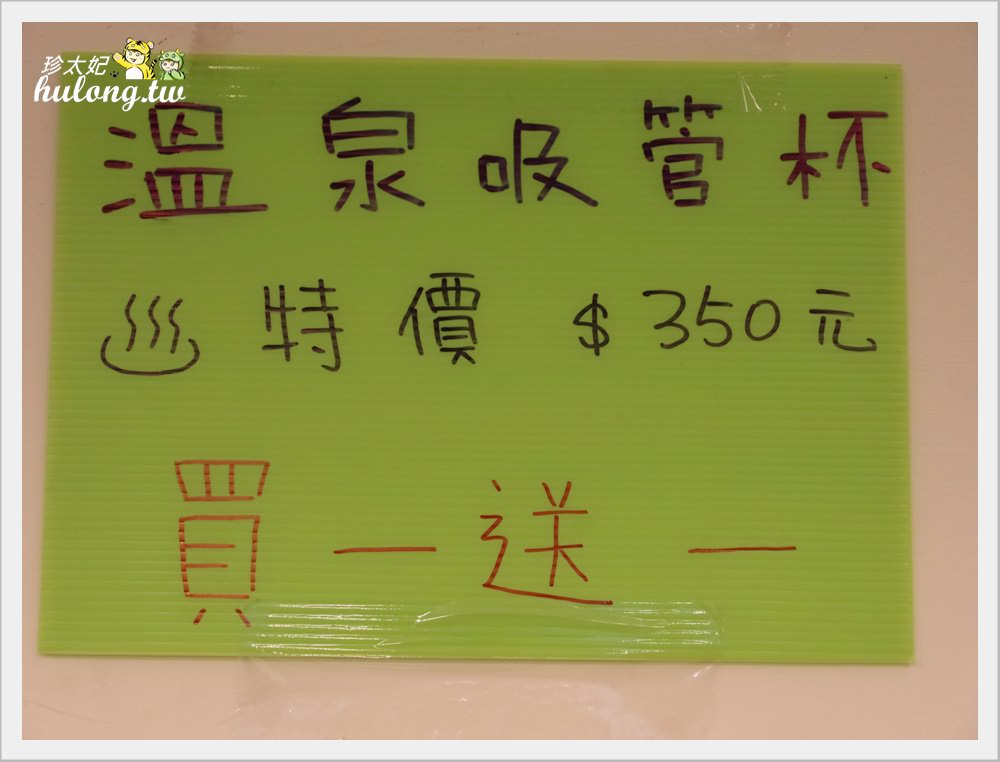 珍太妃
hulong.tw
溫泉吸管杯
♨ 特價 $350元
買一送一